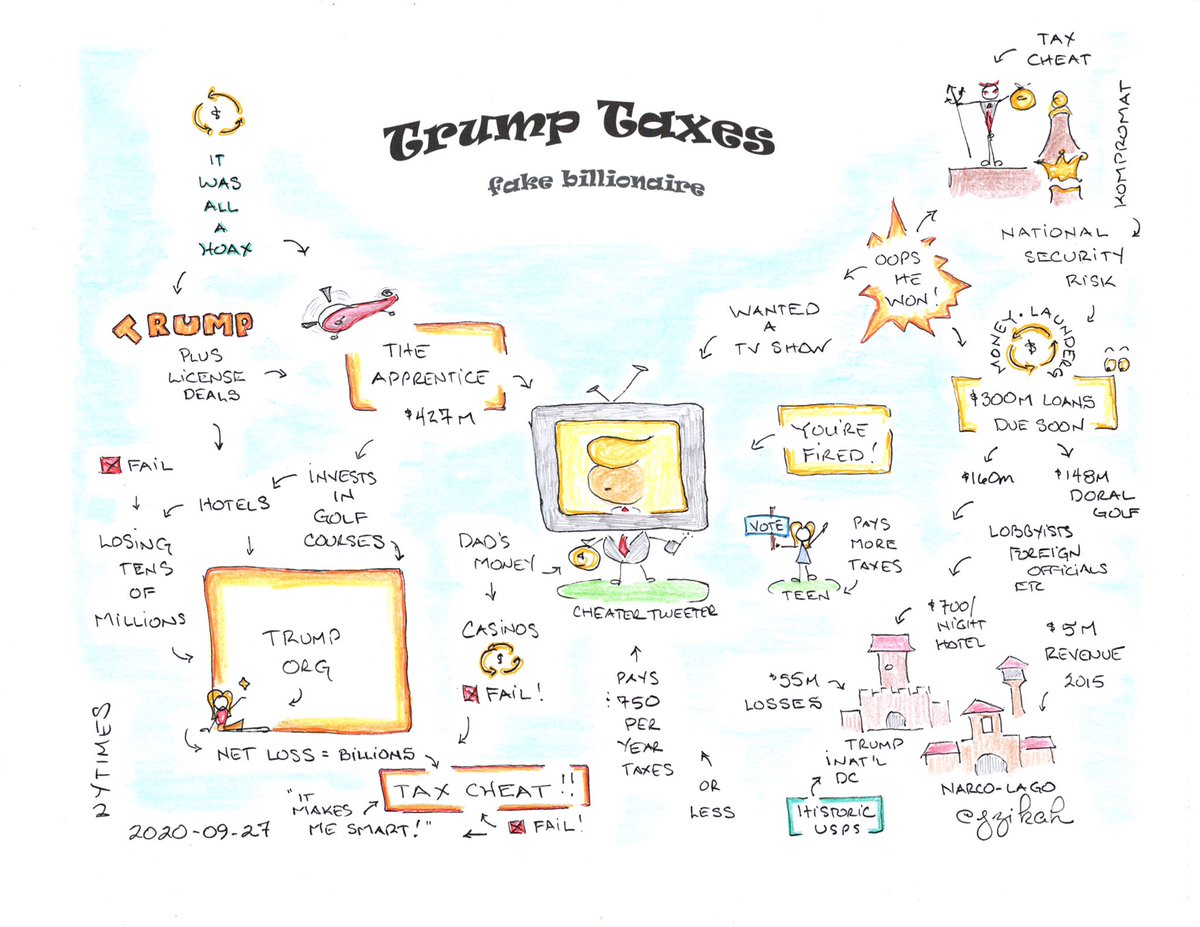 Trump Taxes
fake billionaire
TAX
CHEAT
KOMPROMAT
$
IT
WAS
ALL
A
HOAX
OOPS
HE
WON!
NATIONAL
SECURITY
RISK
TRUMP
PLUS
LICENSE
DEALS
THE
APPRENTICE
$427M
WANTED
A
TV SHOW
MONEY · LAUNDERS
$
$300M LOANS
DUE SOON
$160M
$148M
DORAL
GOLF
YOU'RE
FIRED!
FAIL
HOTELS
INVESTS
IN
GOLF
COURSES
LOSING
TENS
OF
MILLIONS
DAD'S
MONEY
CHEATER TWEETER
VOTE
TEEN
PAYS
MORE
TAXES
LOBBYISTS
FOREIGN
OFFICIALS
ETC
TRUMP
ORG
CASINOS
$
FAIL!
PAYS
$750
PER
YEAR
TAXES
OR
LESS
$700/
NIGHT
HOTEL
$5M
REVENUE
2015
$55M
LOSSES
TRUMP
INAT'L
DC
NARCO-LAGO
HISTORIC
USPS
NET LOSS = BILLIONS
TAX CHEAT!!
"IT
MAKES
ME SMART!"
FAIL!
NYTIMES
2020-09-27